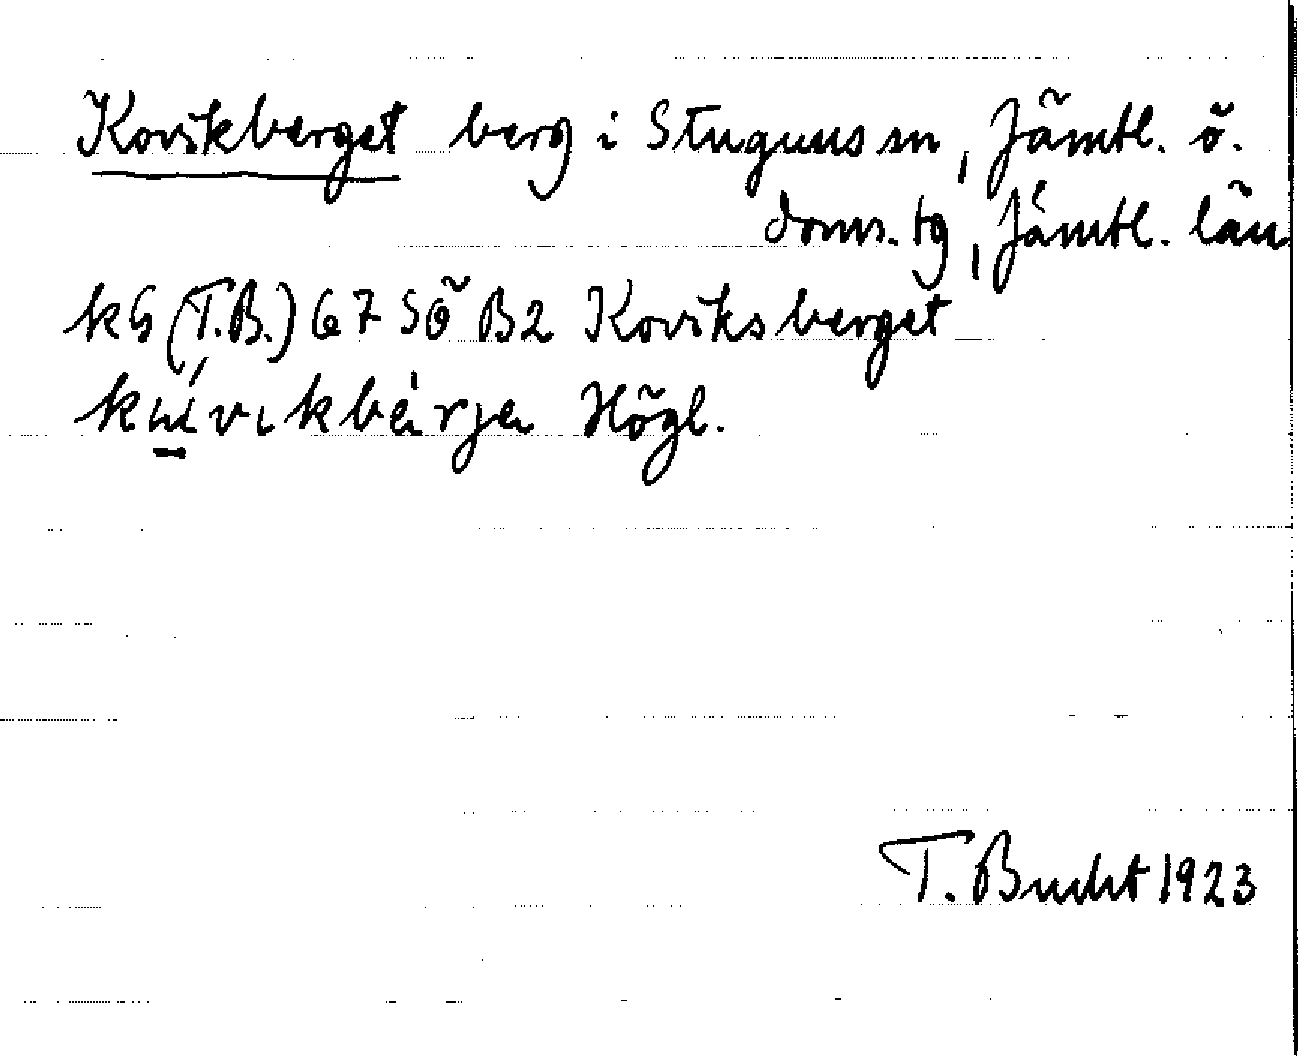 Kovikberget berg i Stuguns sn, Jämtl. ö.
doms. tg, Jämtl. län
kG (T.B.) 67 SÖ B2 Koviksberget
Högl.
T. Bucht 1923